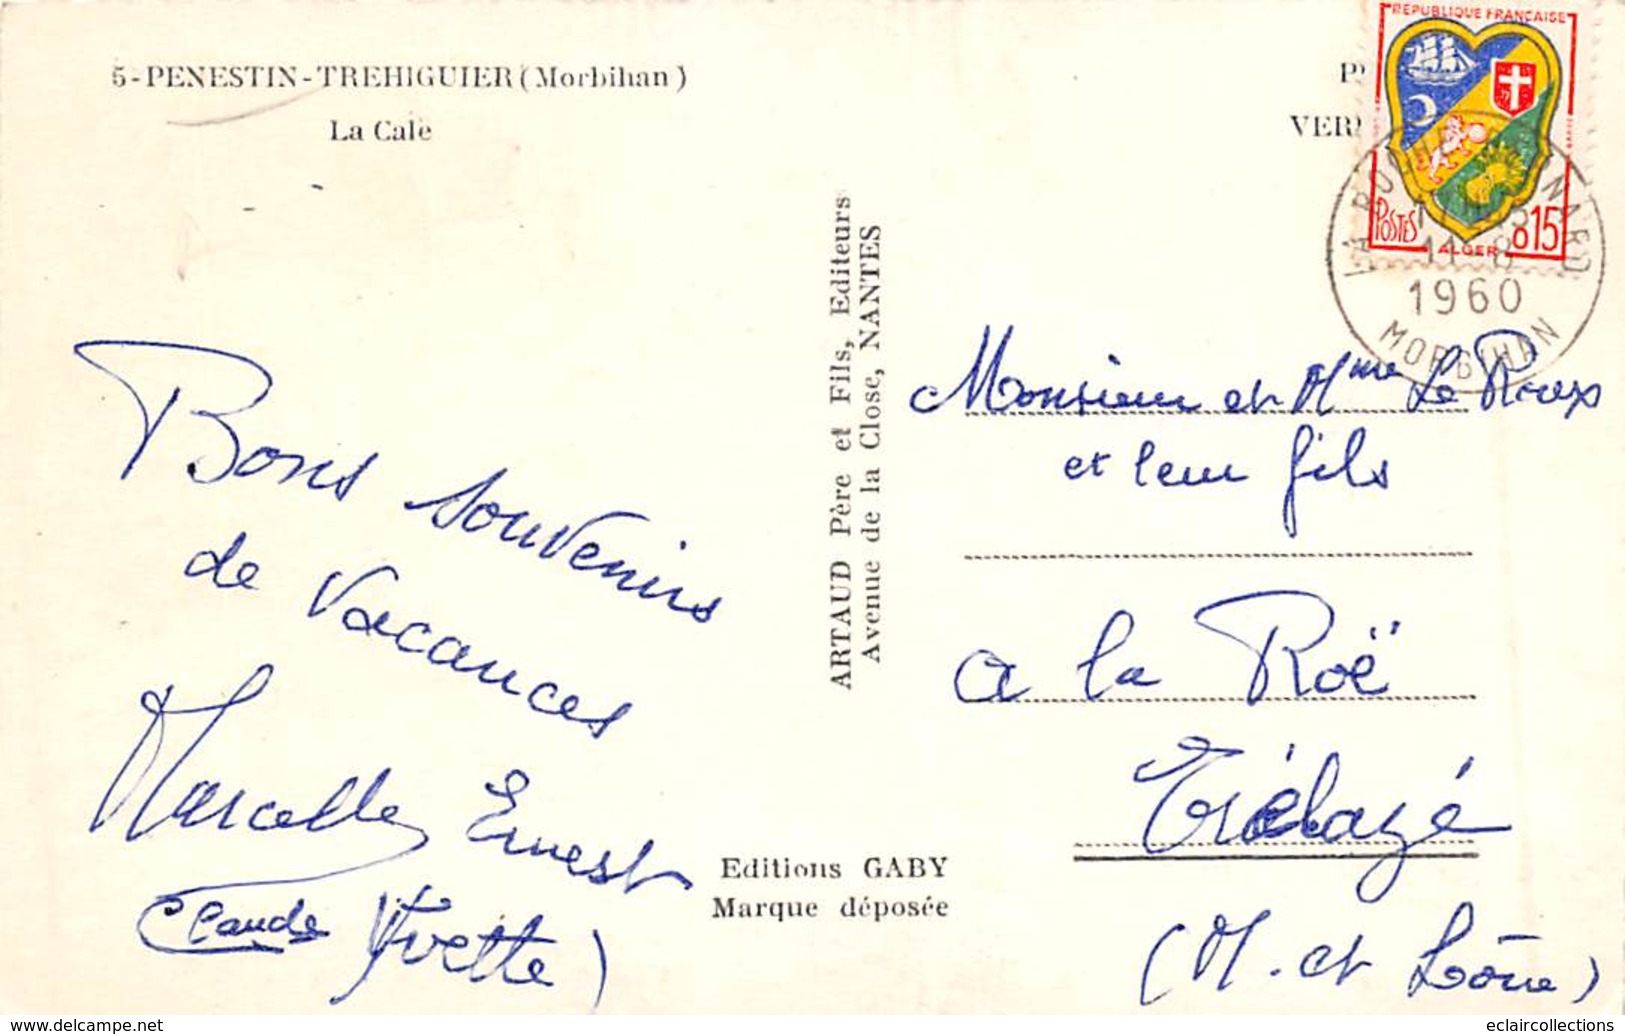 5-PENESTIN-TREHIGUIER (Morbihan)
La Cale
VER
REPUBLIQUE FRANÇAISE
POSTES
ALGER
0,15
LA ROCHE BERNARD
11-8
1960
MORBIHAN
ARTAUD Père et Fils, Editeurs
Avenue de la Close, NANTES
Bons souvenirs
de Vacances
Marcelle Ernest
Claude Yvette
Editions GABY
Marque déposée
Monsieur et Mme Le Roux
et leur fils
a la Roë
Trélazé
(M. et Loire)
eclaircollections
© delcampe.net